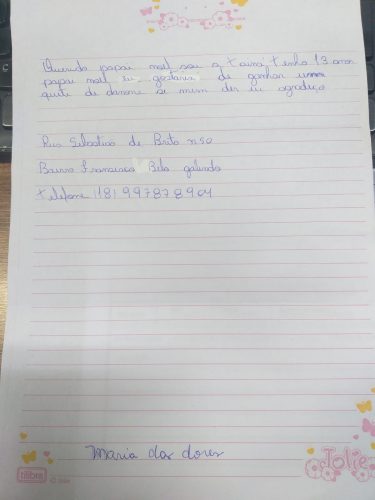 Querido papai noel sou a taina tenho 13 anos
papai noel eu gostaria de ganhar um
quite de danone si mim der eu agradeço
Rua Sebastiao de Brito n 50
Bairro Francisco Bela galinda
telefone (181 997878904
Maria das dores
tilibra
Jolie